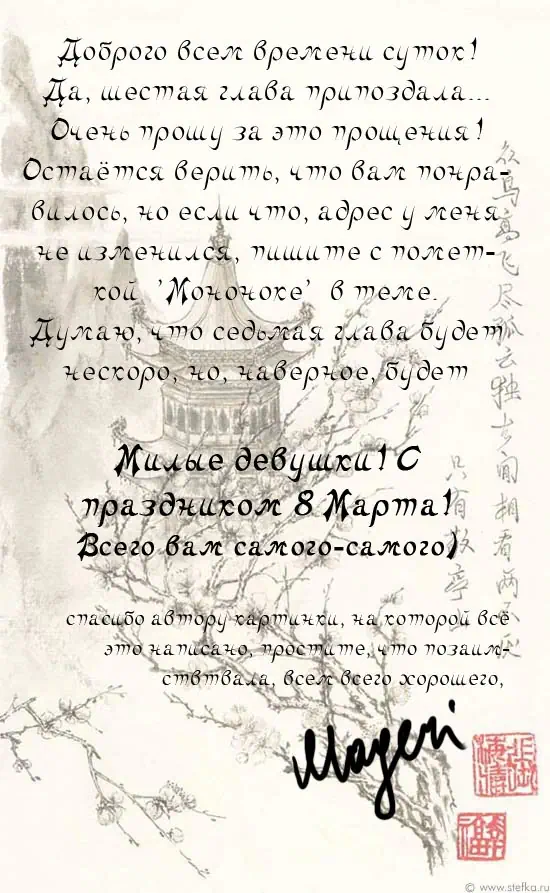 Доброго всем времени суток!
Да, шестая глава припоздала...
Очень прошу за это прощения!
Остаётся верить, что вам понра-
вилось, но если что, адрес у меня
не изменился, пишите с помет-
кой 'Мононоке' в теме.
Думаю, что седьмая глава будет
нескоро, но, наверное, будет
Милые девушки! С
праздником 8 Марта!
Всего вам самого-самого)
спасибо автору картинки, на которой всё
это написано, простите, что позаим-
ствтвала, всем всего хорошего,
Mageri
眾鳥高飛盡孤云独去閒相看兩不厌
只有敬亭山
© www.stefka.ru